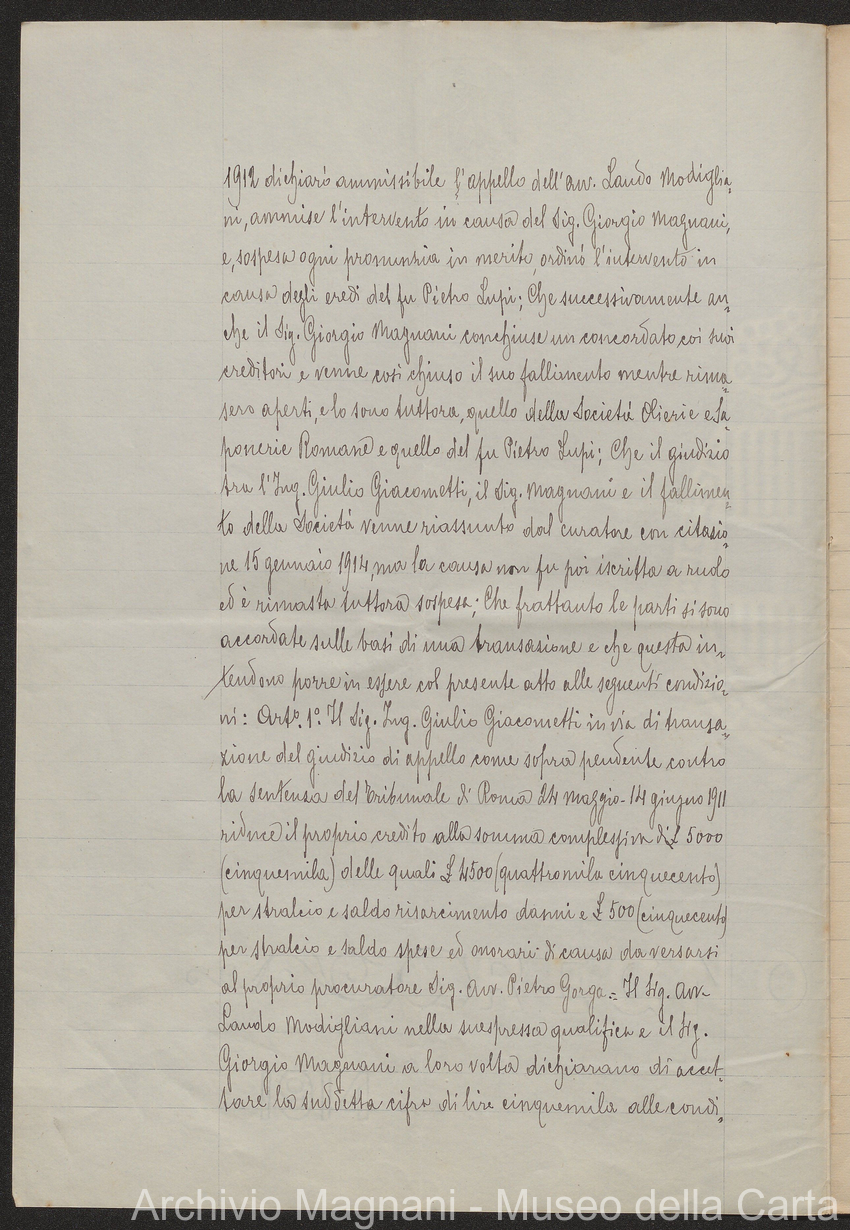 1912 dichiarò ammissibile l'appello dell'avv. Lando Modiglia=
ni, ammise l'intervento in causa del Sig. Giorgio Magnani,
e, sospesa ogni pronunzia in merito, ordinò l'intervento in
causa degli eredi del fu Pietro Lupi; Che successivamente an=
che il Sig. Giorgio Magnani conchiuse un concordato coi suoi
creditori e venne così chiuso il suo fallimento mentre rima=
sero aperti, e lo sono tuttora, quello della Società Olierie e Sa=
ponerie Romane e quello del fu Pietro Lupi; Che il giudizio
tra l'Ing. Giulio Giacometti, il Sig. Magnani e il fallimen=
to della Società venne riassunto dal curatore con citazio=
ne 15 gennaio 1914, ma la causa non fu poi iscritta a ruolo
ed è rimasta tuttora sospesa; Che frattanto le parti si sono
accordate sulle basi di una transazione e che questa in=
tendono porre in essere col presente atto alle seguenti condizio=
ni: Artº. 1º. Il Sig. Ing. Giulio Giacometti in via di transa=
zione del giudizio di appello come sopra pendente contro
la sentenza del Tribunale di Roma 24 maggio - 14 giugno 1911
riduce il proprio credito alla somma complessiva di £ 5000
(cinquemila) delle quali £ 4500 (quattromila cinquecento)
per stralcio e saldo risarcimento danni e £ 500 (cinquecento)
per stralcio e saldo spese ed onorari di causa da versarsi
al proprio procuratore Sig. Avv. Pietro Gorga.= Il Sig. Avv.
Lando Modigliani nella suespressa qualifica e il Sig.
Giorgio Magnani a loro volta dichiarano di accet=
tare la suddetta cifra di lire cinquemila alle condi=
Archivio Magnani - Museo della Carta